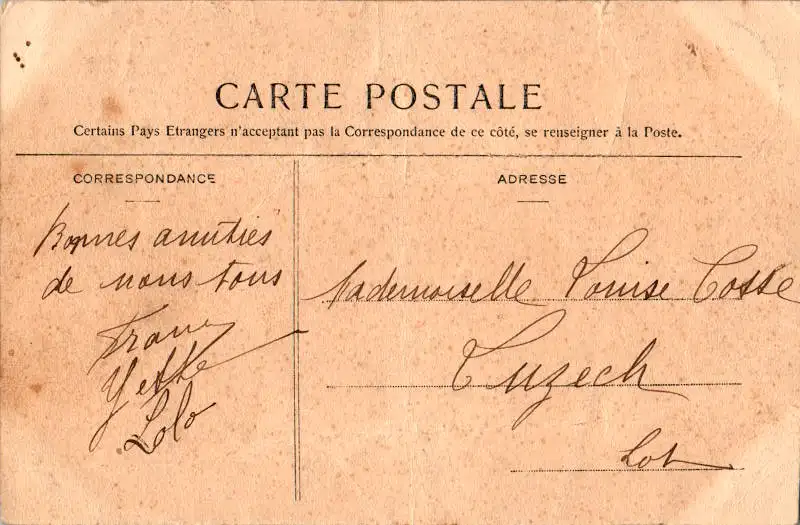 CARTE POSTALE
Certains Pays Etrangers n'acceptant pas la Correspondance de ce côté, se renseigner à la Poste.
CORRESPONDANCE
Bonnes amitiés
de nous tous
Yette
Lolo
ADRESSE
Mademoiselle Louise Cosse
Luzech
Lot